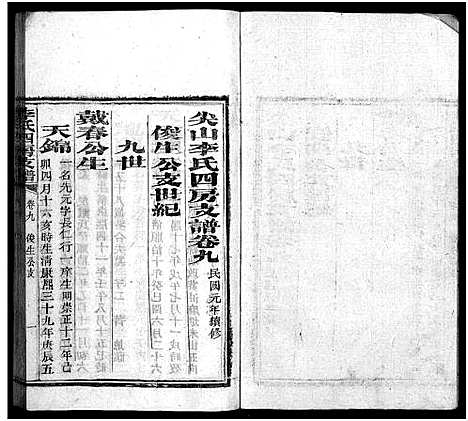 尖山李氏四房支譜卷九 民國元年續修
俊生公支世紀
九世
戴春公生
天錦 一名先元字長仁行一庠生明崇正十二年己
卯四月十六亥時生清康熙三十九年庚辰五
李氏四房支譜 卷九 俊生公支